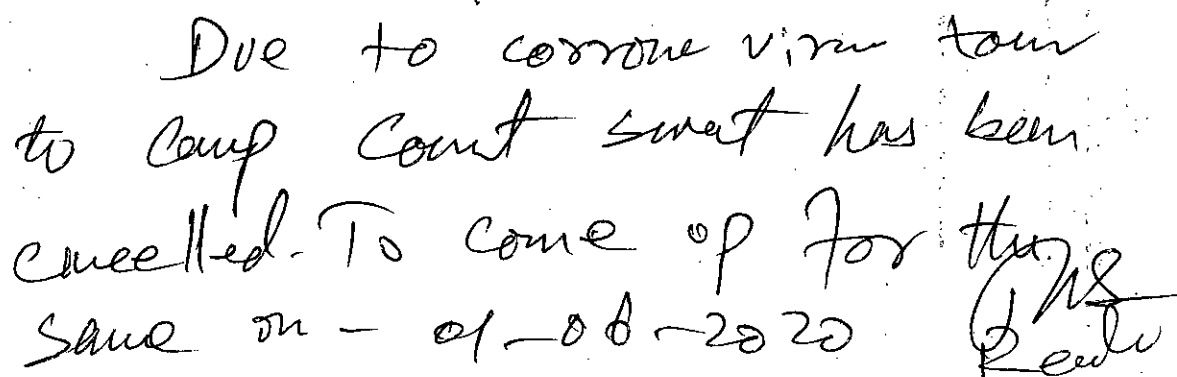 Due to corrone virus tour
to camp Court swat has been
cancelled. To come up for the
same on - 01-06-2020 Reader